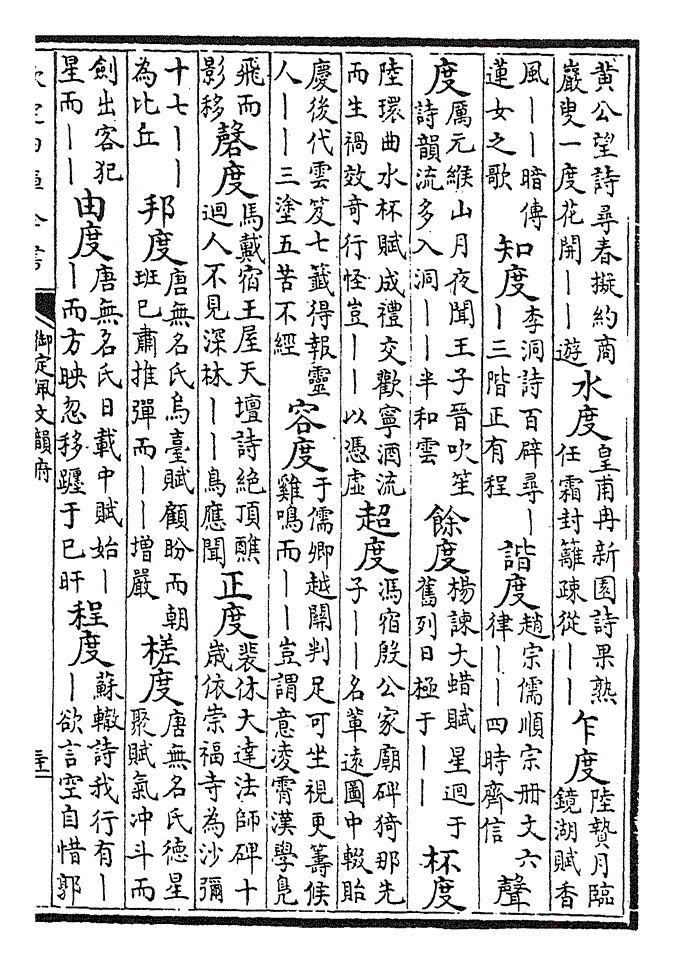 黄公望詩尋春擬約商
巖叟一度花開丨丨遊
水度
皇甫冉新園詩果熟
任霜封籬疎從丨丨
乍度
陸贄月臨
鏡湖賦香
風丨丨暗傳
蓮女之歌
知度
李洞詩百辟尋丨
丨三階正有程
諧度
趙宗儒順宗册文六
律丨丨四時齊信
聲
度
厲元緱山月夜聞王子晉吹笙
詩韻流多入洞丨丨半和雲
餘度
楊諫大蜡賦星迴于
舊列日極于丨丨
杯度
陸環曲水杯賦成禮交歡寧酒流
而生禍效奇行怪豈丨丨以憑虚
超度
馮宿殷公家廟碑猗那先
子丨丨名輩遠圖中輟貽
慶後代雲笈七籤得報靈
人丨丨三塗五苦不經
容度
于儒卿越關判足可坐視更籌俟
雞鳴而丨丨豈謂意凌霄漢學鳬
飛而
影移
磬度
馬戴宿王屋天壇詩絶頂醮
迴人不見深林丨丨鳥應聞
正度
裴休大達法師碑十
歲依崇福寺為沙彌
十七丨丨
為比丘
邦度
唐無名氏烏臺賦顧盼而朝
班已肅推彈而丨丨増嚴
槎度
唐無名氏德星
聚賦氣冲斗而
劍出客犯
星而丨丨
由度
唐無名氏日載中賦始丨
丨而方映忽移躔于已旰
程度
蘇轍詩我行有丨
丨欲言空自惜郭
欽定四庫全書
御定佩文韻府